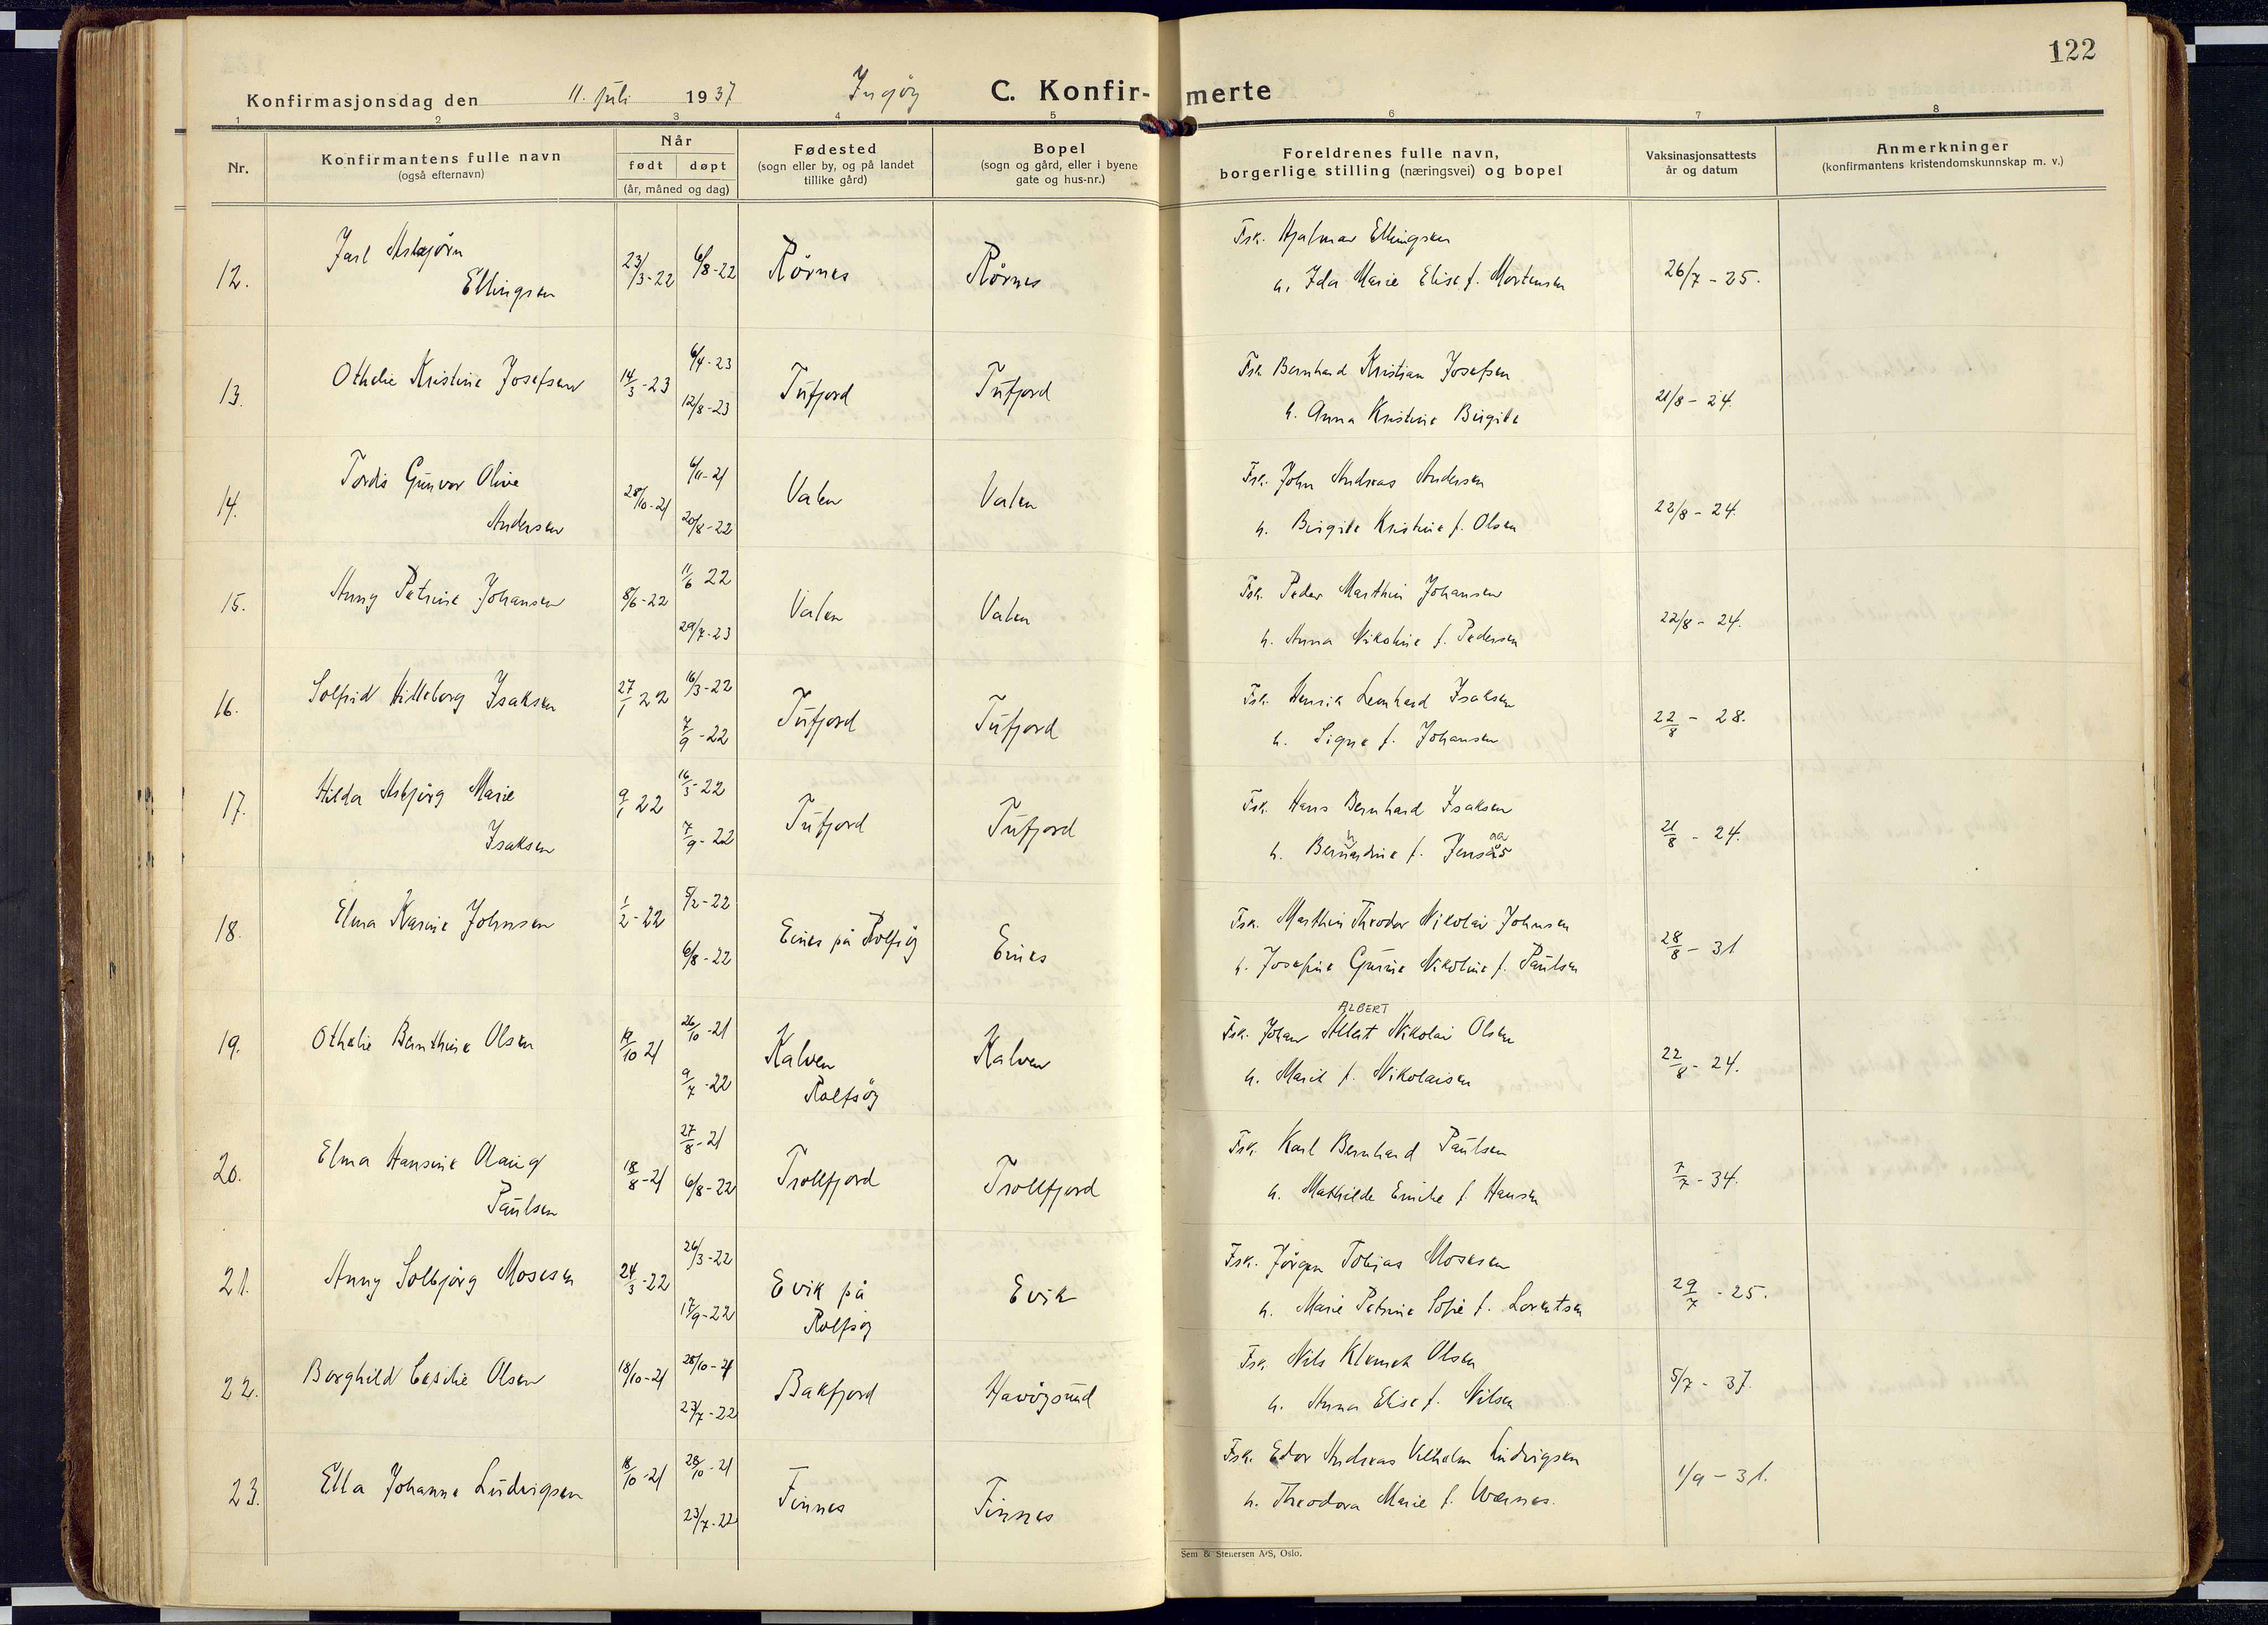 122
Konfirmasjonsdag den 11. juli 1937 Ingøy C. Konfirmerte
1 2 3 4 5 6 7 8
Nr.
Konfirmantens fulle navn
(også efternavn)
Når
født døpt
(år, måned og dag)
Fødested
(sogn eller by, og på landet
tillike gård)
Bopel
(sogn og gård, eller i byene
gate og hus-nr.)
Foreldrenes fulle navn,
borgerlige stilling (næringsvei) og bopel
Vaksinasjonsattests
år og datum
Anmerkninger
(konfirmantens kristendomskunnskap m. v.)
12. Jarl Asbjørn
Ellingsen
23/3-22 6/8-22 Rörnes Rörnes
Fsk. Hjalmar Ellingsen
h. Ida Marie Elise f. Mortensen
26/7 - 25.
13. Othelie Kristine Josefsen
14/3-23 6/4-23
12/8-23
Tufjord Tufjord
Fsk. Bernhard Kristian Josefsen
h. Anna Kristine Birgite
21/8 - 24.
14. Tordis Gunvor Olive
Andersen
28/10-21 6/11-21
20/8-22
Valen Valen
Fsk. John Andreas Andersen
h. Birgite Kristine f. Olsen
22/8 - 24.
15. Anny Petrine Johansen
8/6-22 11/6 22
29/7-23
Valen Valen
Fsk. Peder Marthin Johansen
h. Anna Nikoline f. Pedersen
22/8 - 24.
16. Solfrid Hilleborg Isaksen
27/1 22 16/3-22
7/9-22
Tufjord Tufjord
Fsk. Henrik Leonhard Isaksen
h. Signe f. Johansen
22/8 - 28.
17. Hilda Asbjørg Marie
Isaksen
9/1 22 16/3-22
7/9-22
Tufjord Tufjord
Fsk. Hans Bernhard Isaksen
h. Bernhardine f. Jensaas
21/8 - 24.
18. Elma Karine Johnsen
1/2-22 5/2-22
6/8-22
Eines på Rolfsöy Eines
Fsk. Marthin Theodor Nikolai Johnsen
h. Josefine Gurine Nikoline f. Paulsen
28/8 - 31
19. Othelie Bernthine Olsen
19/10 21 26/10-21
9/7-22
Kalven
Rolfsöy
Kalven
ALBERT
Fsk. Johan Albert Nikolai Olsen
h. Marit f. Nikolaisen
22/8 - 24.
20. Elma Hansine Olaug
Paulsen
18/8-21 27/8-21
6/8-22
Trollfjord Trollfjord
Fsk. Karl Bernhard Paulsen
h. Mathilde Emilie f. Hansen
7/7 - 34.
21. Anny Solbjörg Mosesen
24/3-22 26/3-22
17/9-22
Evik på
Rolfsöy
Evik
Fsk. Jörgen Tobias Mosesen
h. Marie Petrine Sofie f. Lorentsen
29/7 - 25.
22. Borghild Cesilie Olsen
18/10-21 28/10-21
23/7-22
Bakfjord Havöysund
Fsk. Nils Klemet Olsen
h. Anna Elise f. Nilsen
5/7 - 37.
23. Ella Johanne Ludvigsen
18/10-21 28/10-21
23/7-22
Finnes Finnes
Fsk. Edor Andreas Vilhelm Ludvigsen
h. Theodora Marie f. Wærnes.
1/9 - 31.
Sem & Stenersen A/S, Oslo.